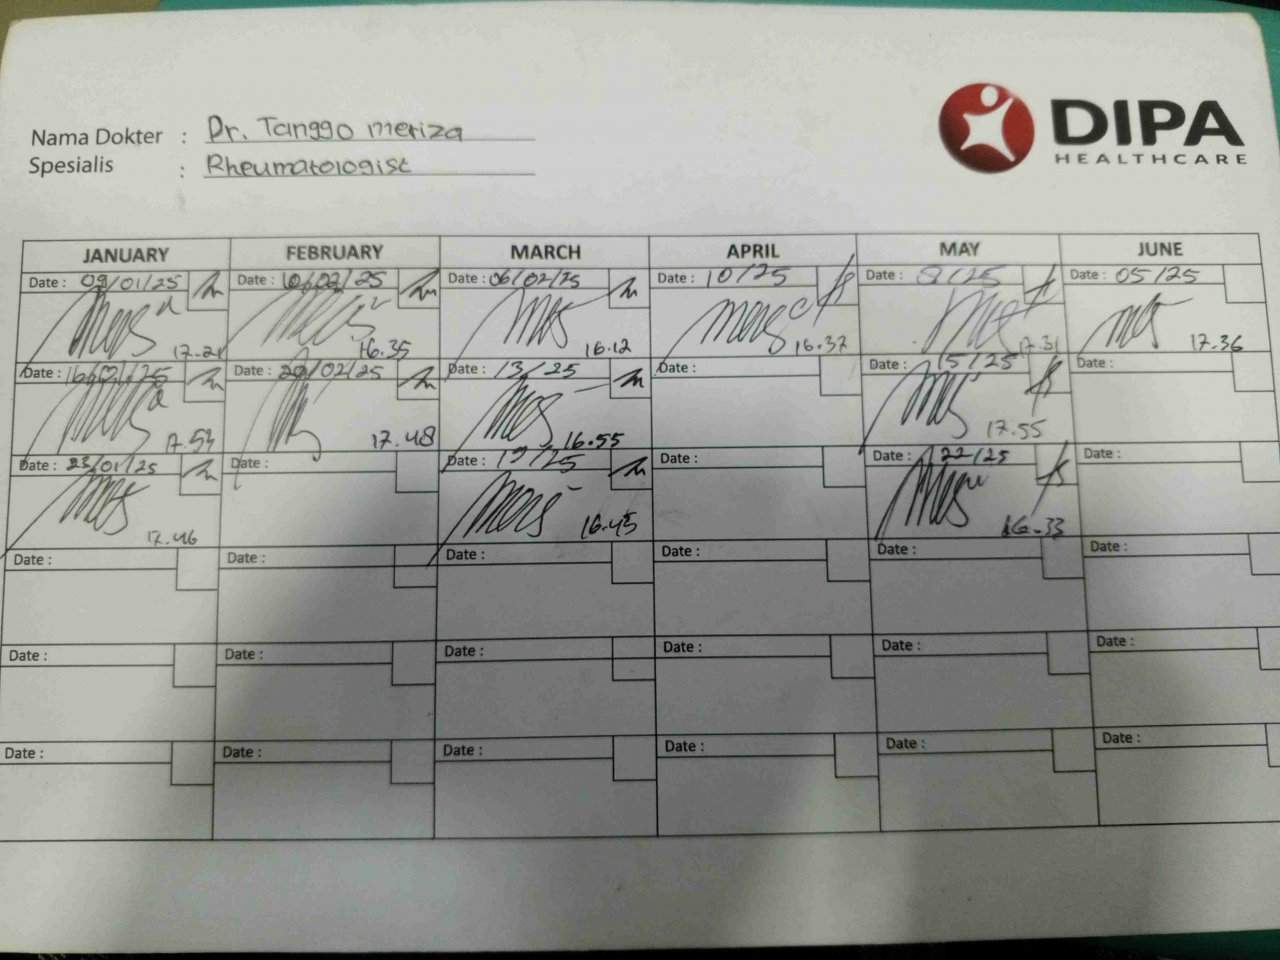 DIPA
HEALTHCARE
Nama Dokter : Dr. Tanggo meriza
Spesialis : Rheumatologist
JANUARY FEBRUARY MARCH APRIL MAY JUNE
Date : 09/01/25 Date : 10/02/25 Date : 06/02/25 Date : 10/25 Date : 8/25 Date : 05/25
17.21 16.35 16.12 16.37 17.31 17.36
Date : 16/01/25 Date : 20/02/25 Date : 13/25 Date : Date : 15/25 Date :
17.53 17.48 16.55 17.55
Date : 23/01/25 Date : Date : 19/25 Date : Date : 22/25 Date :
17.46 16.45 16.33
Date : Date : Date : Date : Date : Date :
Date : Date : Date : Date : Date : Date :
Date : Date : Date : Date : Date : Date :